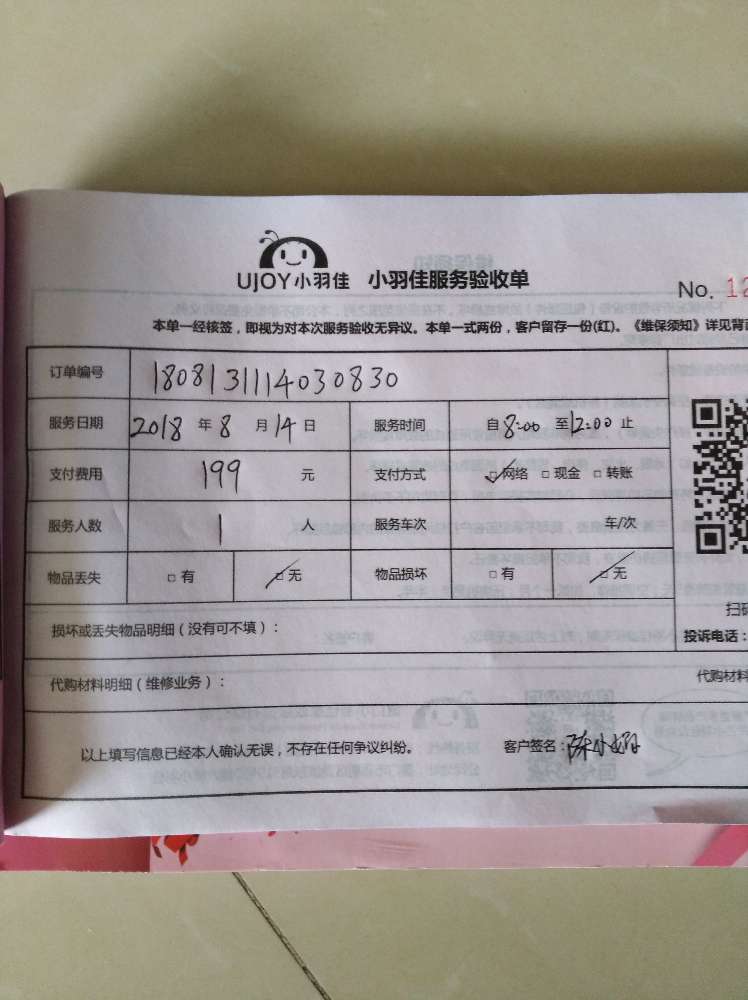 UJOY小羽佳 小羽佳服务验收单
No. 12
本单一经核签，即视为对本次服务验收无异议。本单一式两份，客户留存一份(红)。《维保须知》详见背
订单编号 1808131114030830
服务日期 2018 年 8 月 14 日 服务时间 自 8:00 至 12:00 止
支付费用 199 元 支付方式 网络 现金 转账
服务人数 1 人 服务车次 车/次
物品丢失 有 无 物品损坏 有 无
扫码
损坏或丢失物品明细（没有可不填）：
投诉电话：
代购材料明细（维修业务）：
代购材料
以上填写信息已经本人确认无误，不存在任何争议纠纷。 客户签名：陈小娟